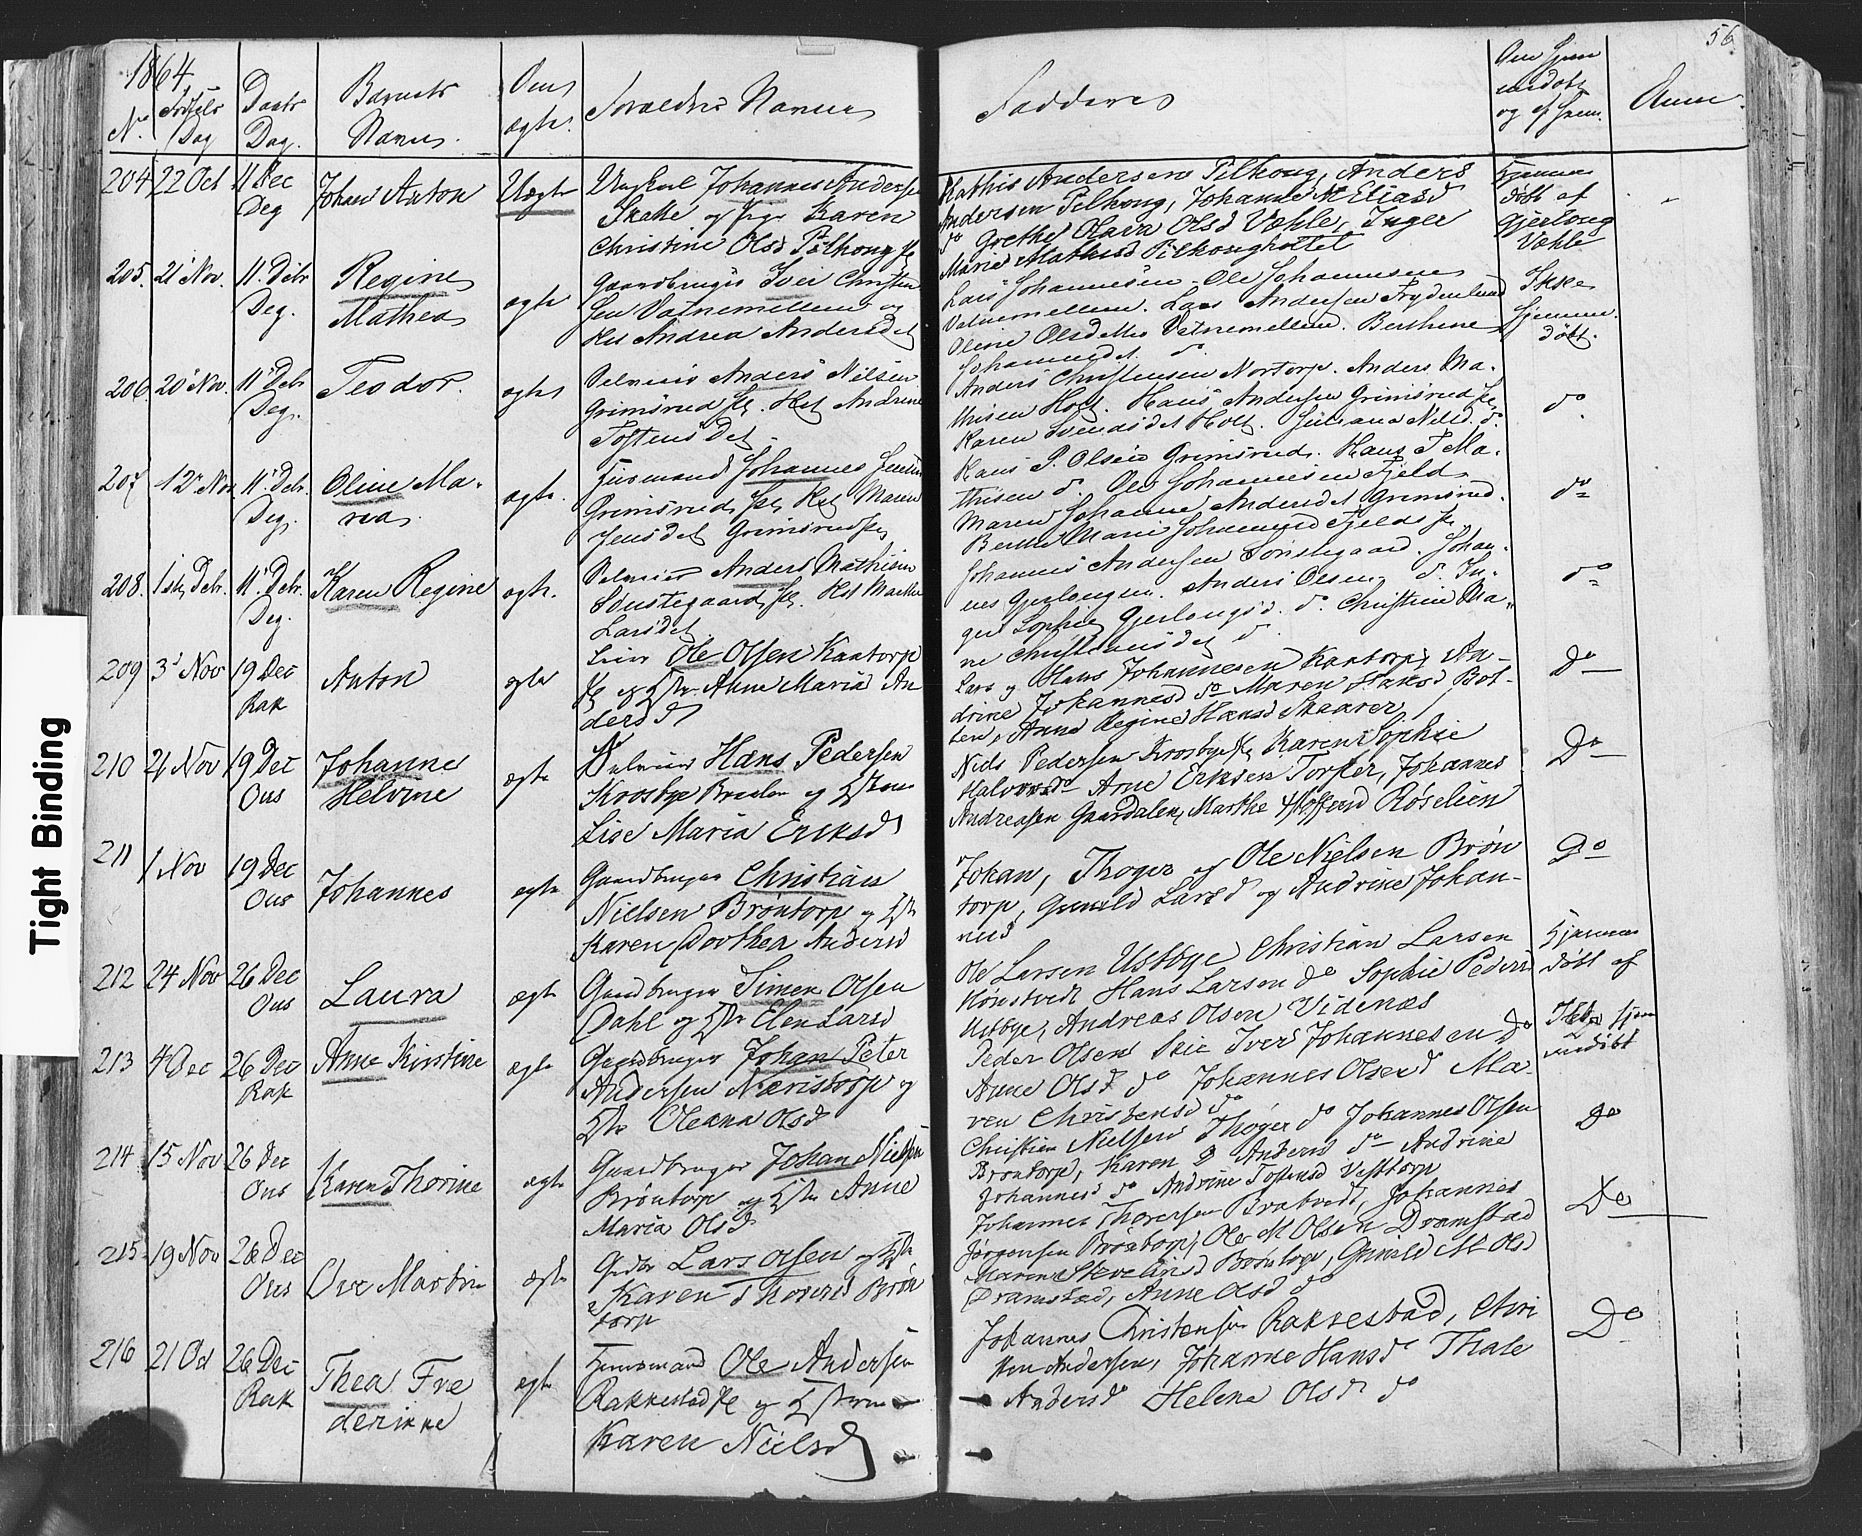 1864
56
No
Fødsels Dag
Daabs Dag.
Barnets Navne.
Om ægte.
Forældres Navne
Faddere
Om hjemmedøbt og af hvem.
Anm.
204 22 Oct 11 Dec Deg Johan Anton Uægte Ungkarl Johannes Anders
Skakke og Pige Karen
Christine Olsd Pilhoug
Mathis Andersen Pilhoug, Anders
Andersen Pilhoug, Johanne M Eliasd
do Grethe Olava Olsd Væhle, Inger
Marie Mathisd Pilhougholtet
Hjemme
døbt af
Gjerloug
Væhle
205. 21 Nov. 11. Debr. Deg. Regine Mathea ægte Gaardbruger Iver Christen
sen Vatnemellem og
Kst Andrea Andersdet
Lars Johannesen. Ole Johannesen
Vatnemellem. Lars Andersen Frydenlund
Oline Olsdatter Vatnemellem. Berthine
Johannesdt do.
Ikke
hjemme
døbt.
206. 20 Nov. 11 Debr. Deg. Teodor. ægte Selveier Anders Nilsen
Grimsrud Kst Andrine
Tostensdet.
Anders Christensen Nortorp. Anders Ma-
thisen Holt. Hans Andersen Grimsrud
Karen Svendsdet Holt. Juliana Nilsd. do.
do.
207 12 Nov 11. Debr. Deg. Oline Ma-
ria. ægte. Huusmand Johannes Jensen
Grimsrud Kst Maren
Jensdet Grimsrud
Hans P. Olsen Grimsrud. Hans T Ma-
thisen do Ole Johannesen Fjeld
Maren Johanne Andersdet Grimsrud.
Berthe Marie Johannesd Fjeld
do
208. 1ste Debr. 11. Debr. Deg. Karen Regine ægte. Selveier Anders Mathisen
Sønstegaard Kst Marthe
Larsdet
Johannes Andersen Sønstegaard. Johan-
nes Gjerlougen. Anders Olsen do. In-
ger Sophie Gjerlougsd. do. Christine Ma-
rie Christensdet do.
do
209 3 Nov 19 Dec Rak Anton ægte Ole Olsen Kantorp
og Hstr. Anne Maria An
dersd
Lars og Hans Johannesen Kantorp, An-
drine Johannesd do Maren Hansd Bol-
ten, Anne Regine Hansd Skaarer
Do
210 21 Nov 19 Dec Ous Johanne
Helvine ægte Selveier Hans Pedersen
Krosbye Braaten og Hstru
Lise Maria Eriksd
Niels Pedersen Krosbye, Karen Sophie
Halvorsd Arne Eriksen Torper, Johannes
Andreasen Gaardalen, Marthe Røselien
Do
211 1 Nov 19 Dec Ous Johannes ægte Gaardbruger Christian
Nielsen Brøntorp og Hstr
Karen Dorthea Andersd
Johan, Thoger og Ole Nielsen Brøn
torp, Gunild Larsd og Andrine Johan-
nesd
Do
212 24 Nov 26 Dec Ous Laura ægte Gaardbruger Simen Olsen
Dahl og Hstr Elen Larsd
Ole Larsen Ustbye Christian Larsen
Hønstvedt Hans Larsen do Sophie Pedersd
Ustbye, Andreas Olsen Videnæs
Hjemme
døbt af
213 4 Dec 26 Dec Rak Anne Kirstine ægte Gaardbruger Johan Peter
Andersen Næristorp og
Hstr Oleana Olsd
Peder Olsen Skie Iver Johannesen do
Anne Olsd do Johannes Olsen Ma-
ren Christensd do
Ikke hjem
medøbt
214 15 Nov 26 Dec Ous Karen Thorine ægte Gaardbruger Johan Nielsen
Brøntorp og Hstr Anne
Maria Olsd
Christian Nielsen Thoger do Johannes Olsen
Brøntorp, Karen D Andersd do Andrine
Johannesd do Andrine Tostensd Vesttorp
Do
215 19 Nov 26 Dec Ous Ove Martin ægte Lars Olsen og Hstr
Karen Thoresd Brøn
torp
Johannes Thoresen Bratvedt, Johannes
Jørgensen Brøntorp, Ole M Olsen Dramstad
Maren Brøntorp, Gunild M Olsd
Dramstad, Anne Olsd do
Do
216 21 Oct 26 Dec Rak Thea Fre
derikke ægte Huusmand Ole Andersen
Rakkestad og Hstru
Karen Nielsd
Johannes Christensen Rakkestad, Chri
sten Andersen, Johanne Hansd Thale
Andersd Helena Olsd do
Do
Tight Binding